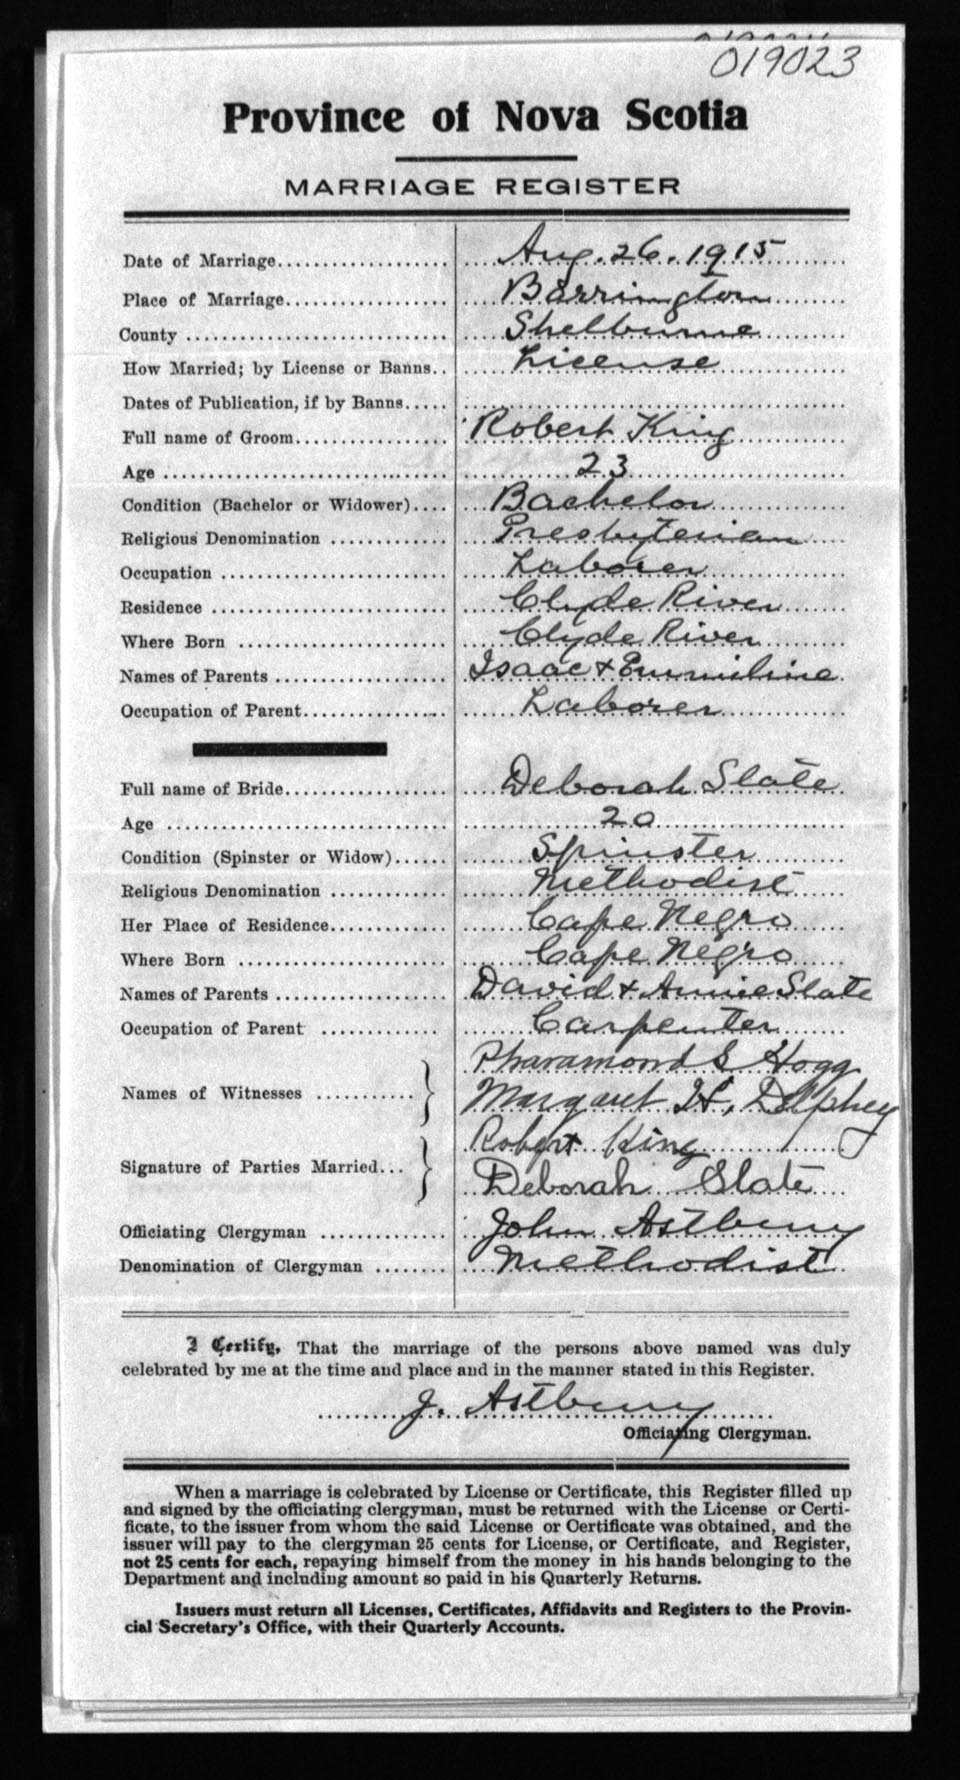 019023
Province of Nova Scotia
MARRIAGE REGISTER
Date of Marriage.................... Aug. 26. 1915
Place of Marriage.................. Barrington
County ............................ Shelburne
How Married; by License or Banns.. License
Dates of Publication, if by Banns.....
Full name of Groom................. Robert King
Age ............................... 23
Condition (Bachelor or Widower).... Bachelor
Religious Denomination ............ Presbyterian
Occupation ........................ Laborer
Residence ......................... Clyde River
Where Born ........................ Clyde River
Names of Parents .................. Isaac & Emmiline
Occupation of Parent............... Laborer
Full name of Bride................. Deborah Slate
Age ............................... 20
Condition (Spinster or Widow)...... Spinster
Religious Denomination ............ Methodist
Her Place of Residence............. Cape Negro
Where Born ........................ Cape Negro
Names of Parents .................. David & Annie Slate
Occupation of Parent .............. Carpenter
Names of Witnesses ........... Pharamond S Hogg
Margaret H. Delphey
Signature of Parties Married... Robert King
Deborah Slate
Officiating Clergyman ............. John Astbury
Denomination of Clergyman ........ Methodist
I Certify, That the marriage of the persons above named was duly
celebrated by me at the time and place and in the manner stated in this Register.
J. Astbury
Officiating Clergyman.
When a marriage is celebrated by License or Certificate, this Register filled up
and signed by the officiating clergyman, must be returned with the License or Certi-
ficate, to the issuer from whom the said License or Certificate was obtained, and the
issuer will pay to the clergyman 25 cents for License, or Certificate, and Register,
not 25 cents for each, repaying himself from the money in his hands belonging to the
Department and including amount so paid in his Quarterly Returns.
Issuers must return all Licenses, Certificates, Affidavits and Registers to the Provin-
cial Secretary's Office, with their Quarterly Accounts.